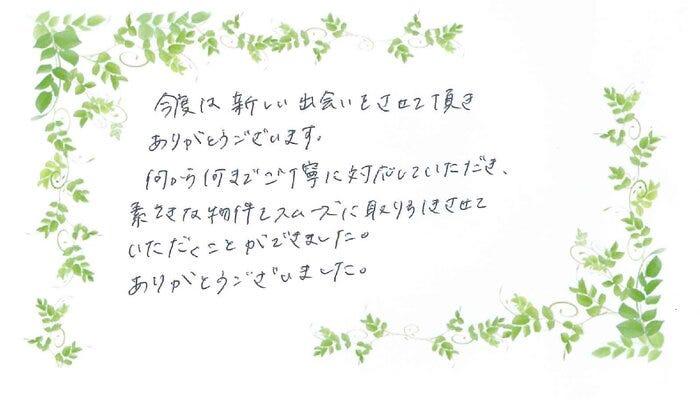 今度は新しい出会いをさせて頂き
ありがとうございます。
何から何までご丁寧に対応していただき、
素敵な物件をスムーズに取り引きさせて
いただくことができました。
ありがとうございました。